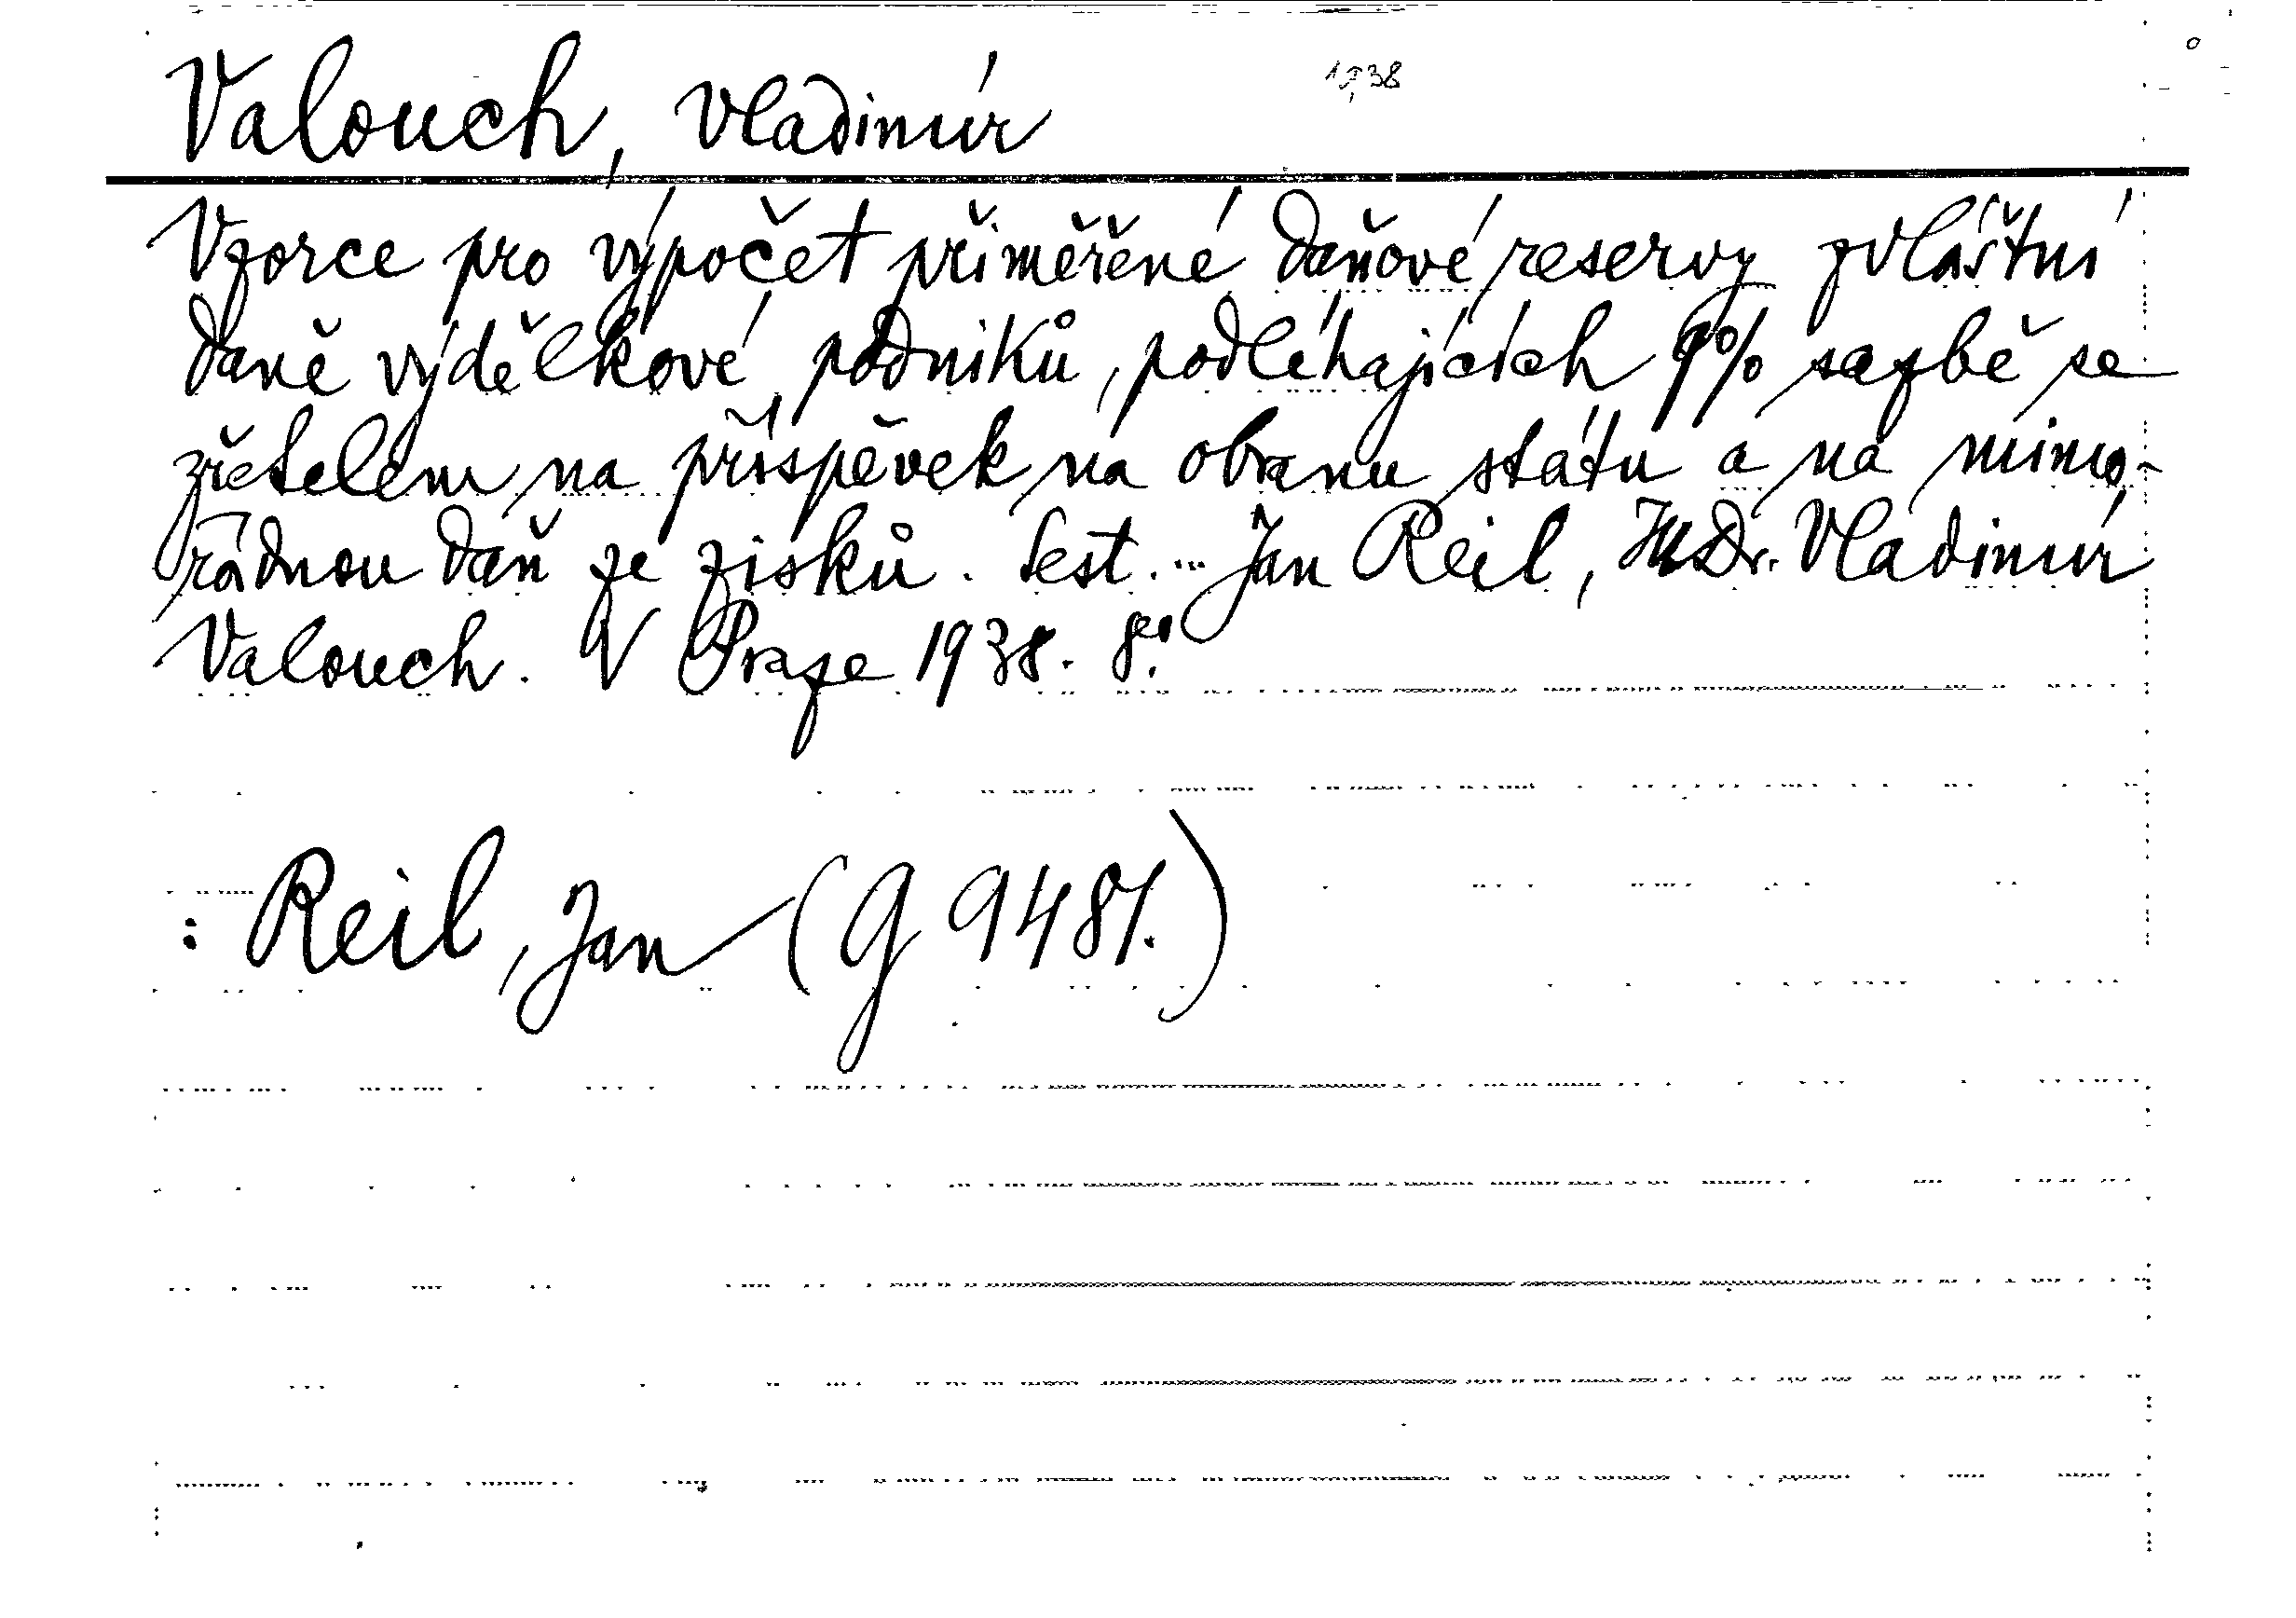 Valouch, Vladimír
1938
Vzorce pro výpočet přiměřené daňové reservy zvláštní
daně výdělkové podniků, podléhajících 9% sazbě se
zřetelem na příspěvek na obranu státu a na mimo-
řádnou daň ze zisků. Sest. ... Jan Reil, JUDr. Vladimír
Valouch. V Praze 1938. 8°.
: Reil, Jan (G 9481.)